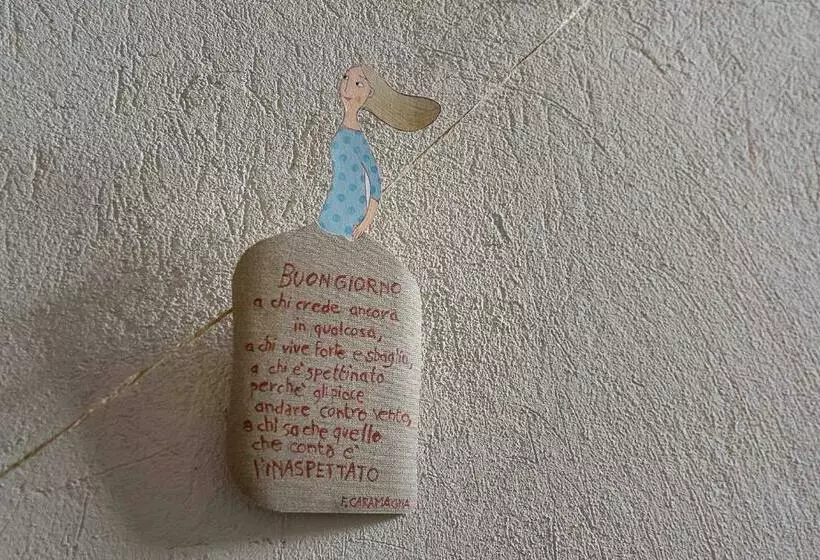 BUONGIORNO
a chi crede ancora
in qualcosa,
a chi vive forte e sbaglia,
a chi è spettinato
perchè gli piace
andare contro vento,
a chi sa che quello
che conta è
l'INASPETTATO
F. CARAMAGNA